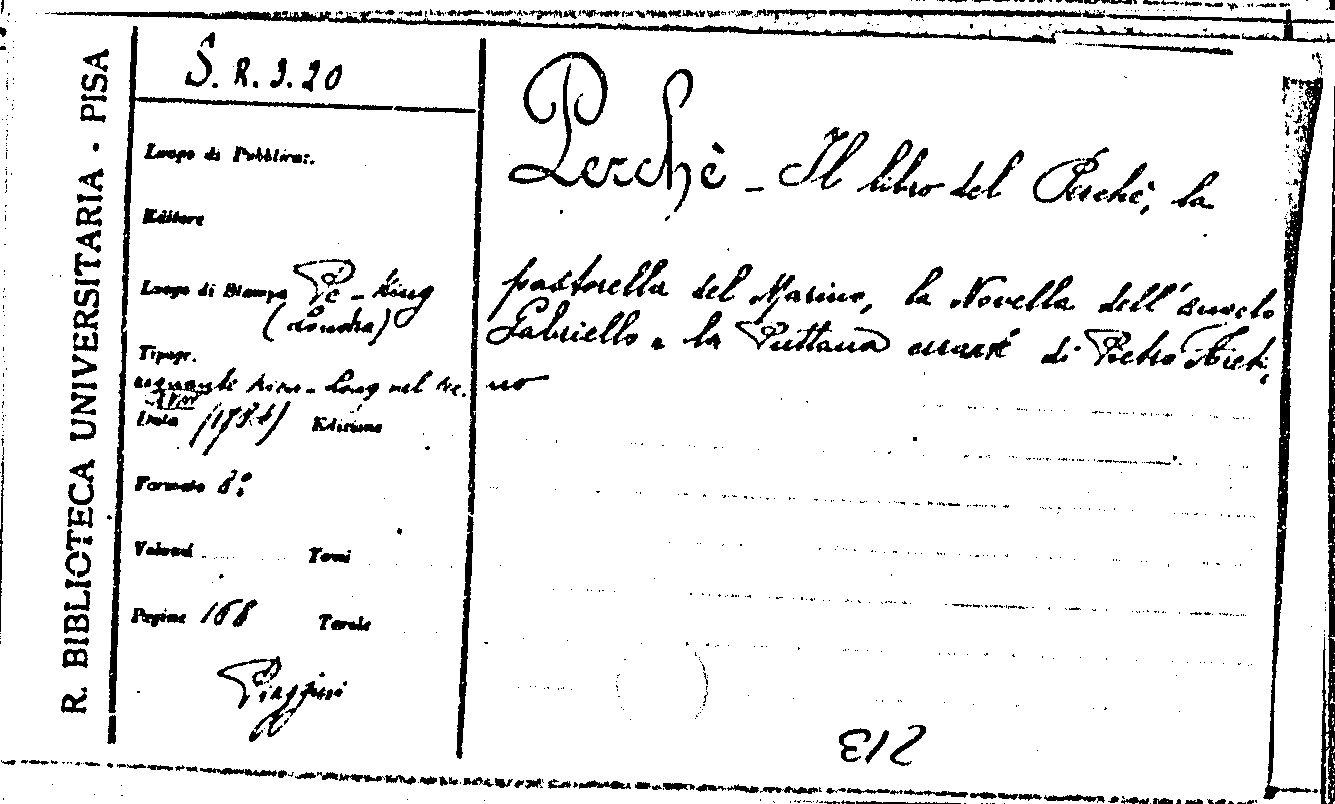 R. BIBLIOTECA UNIVERSITARIA - PISA
S. R. 3. 20
Luogo di Pubblicaz.
Editore
Luogo di Stampa Pe-King
(Londra)
Tipogr.
regnante Kien-Long nel sec.
XVIII
Data (1784) Edizione
Formato 8°
Volumi Tomi
Pagine 168 Tavole
Piaggini
Perchè - Il libro del Perchè, la
pastorella del Marino, la Novella dell'Angelo
Gabriello e la Puttana errante di Pietro Areti,
no
213